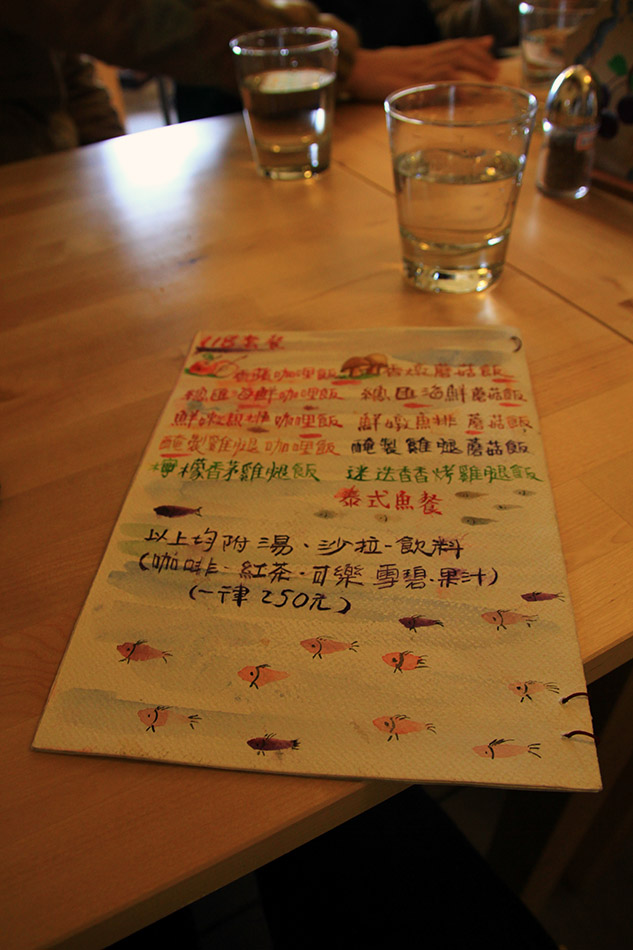 套餐
咖哩飯 香燉蘑菇飯
總匯海鮮咖哩飯 總匯海鮮蘑菇飯
鮮嫩魚排咖哩飯 鮮嫩魚排蘑菇飯
醃製雞腿咖哩飯 醃製雞腿蘑菇飯
檸檬香茅雞腿飯 迷迭香香烤雞腿飯
泰式魚餐
以上均附湯、沙拉-飲料
(咖啡·紅茶·可樂 雪碧·果汁)
(一律250元)